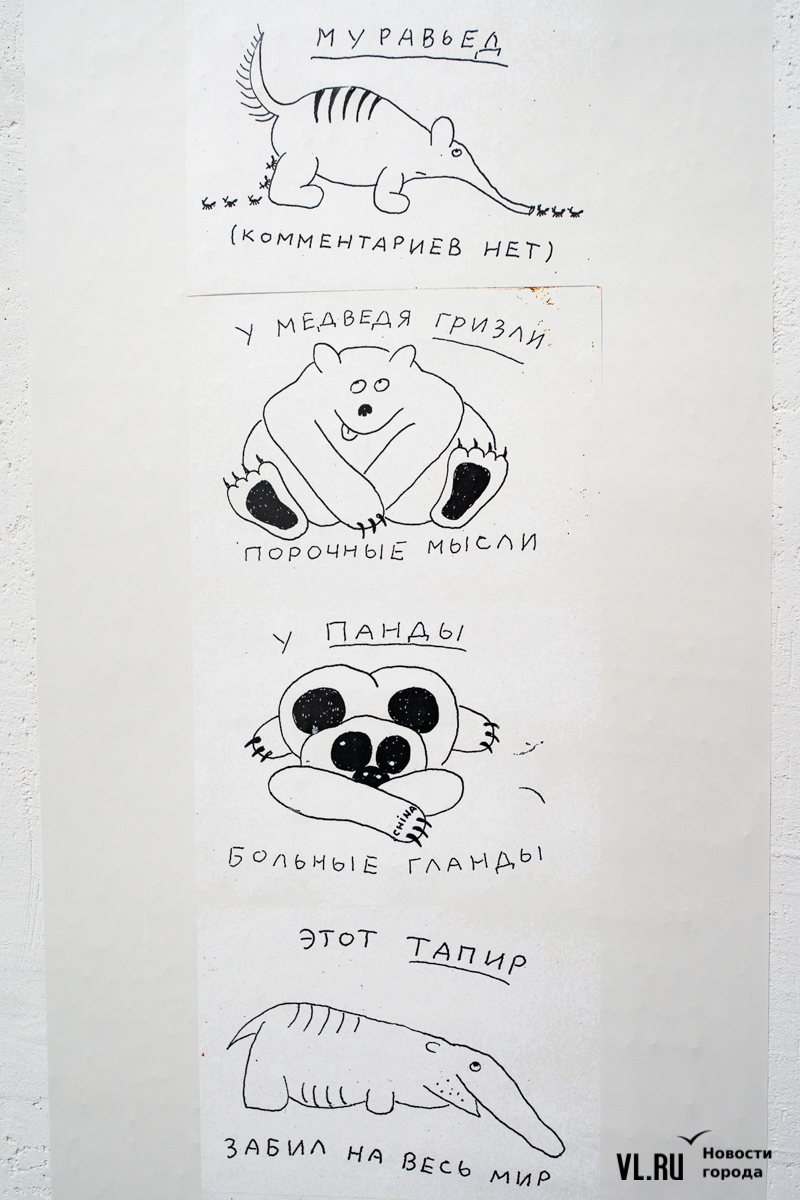 МУРАВЬЕД
(КОММЕНТАРИЕВ НЕТ)
У МЕДВЕДЯ ГРИЗЛИ
ПОРОЧНЫЕ МЫСЛИ
У ПАНДЫ
CHINA
БОЛЬНЫЕ ГЛАНДЫ
ЭТОТ ТАПИР
ЗАБИЛ НА ВЕСЬ МИР
VL.RU Новости
города